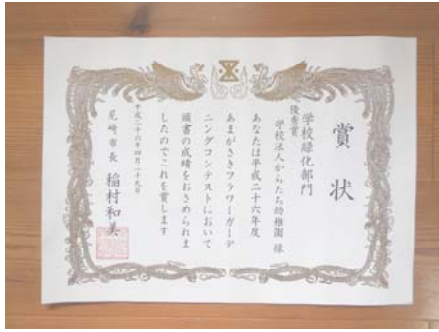 賞状
学校緑化部門
優秀賞
学校法人からたち幼稚園 様
あなたは平成二十六年度
あまがさきフラワーガーデ
ニングコンテストにおいて
頭書の成績をおさめられま
したのでこれを賞します
平成二十六年四月二十九日
尼崎市長 稲村和美